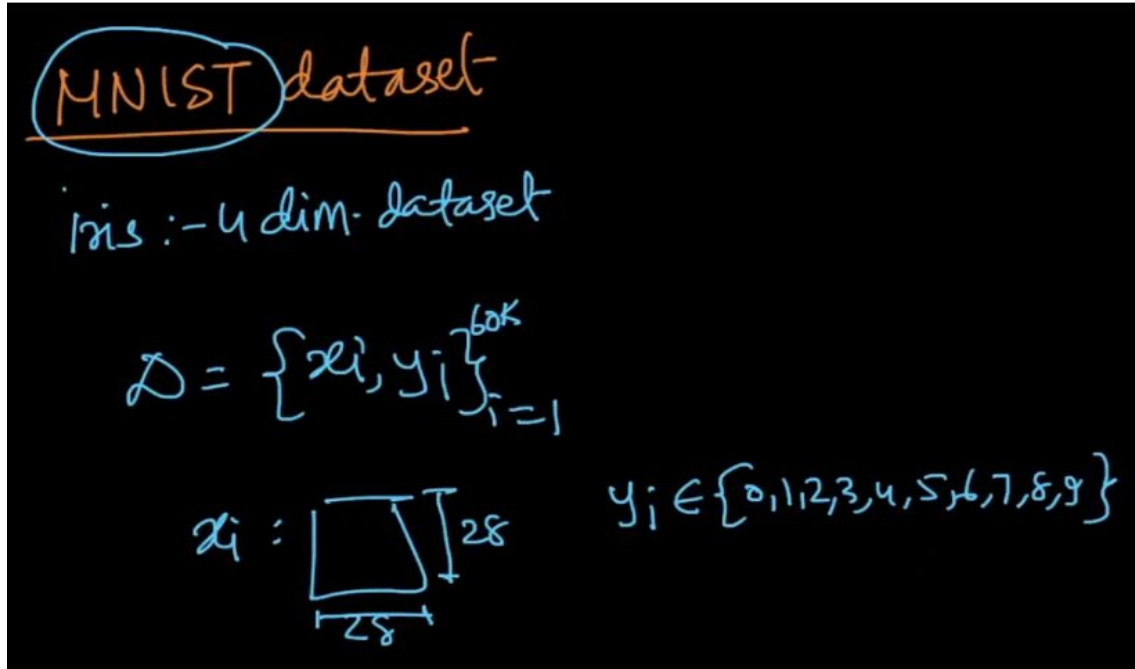 MNIST dataset
iris :- 4 dim. dataset
D = {xi, yi}^60K_i=1
xi : 28
28
yi ∈ {0,1,2,3,4,5,6,7,8,9}